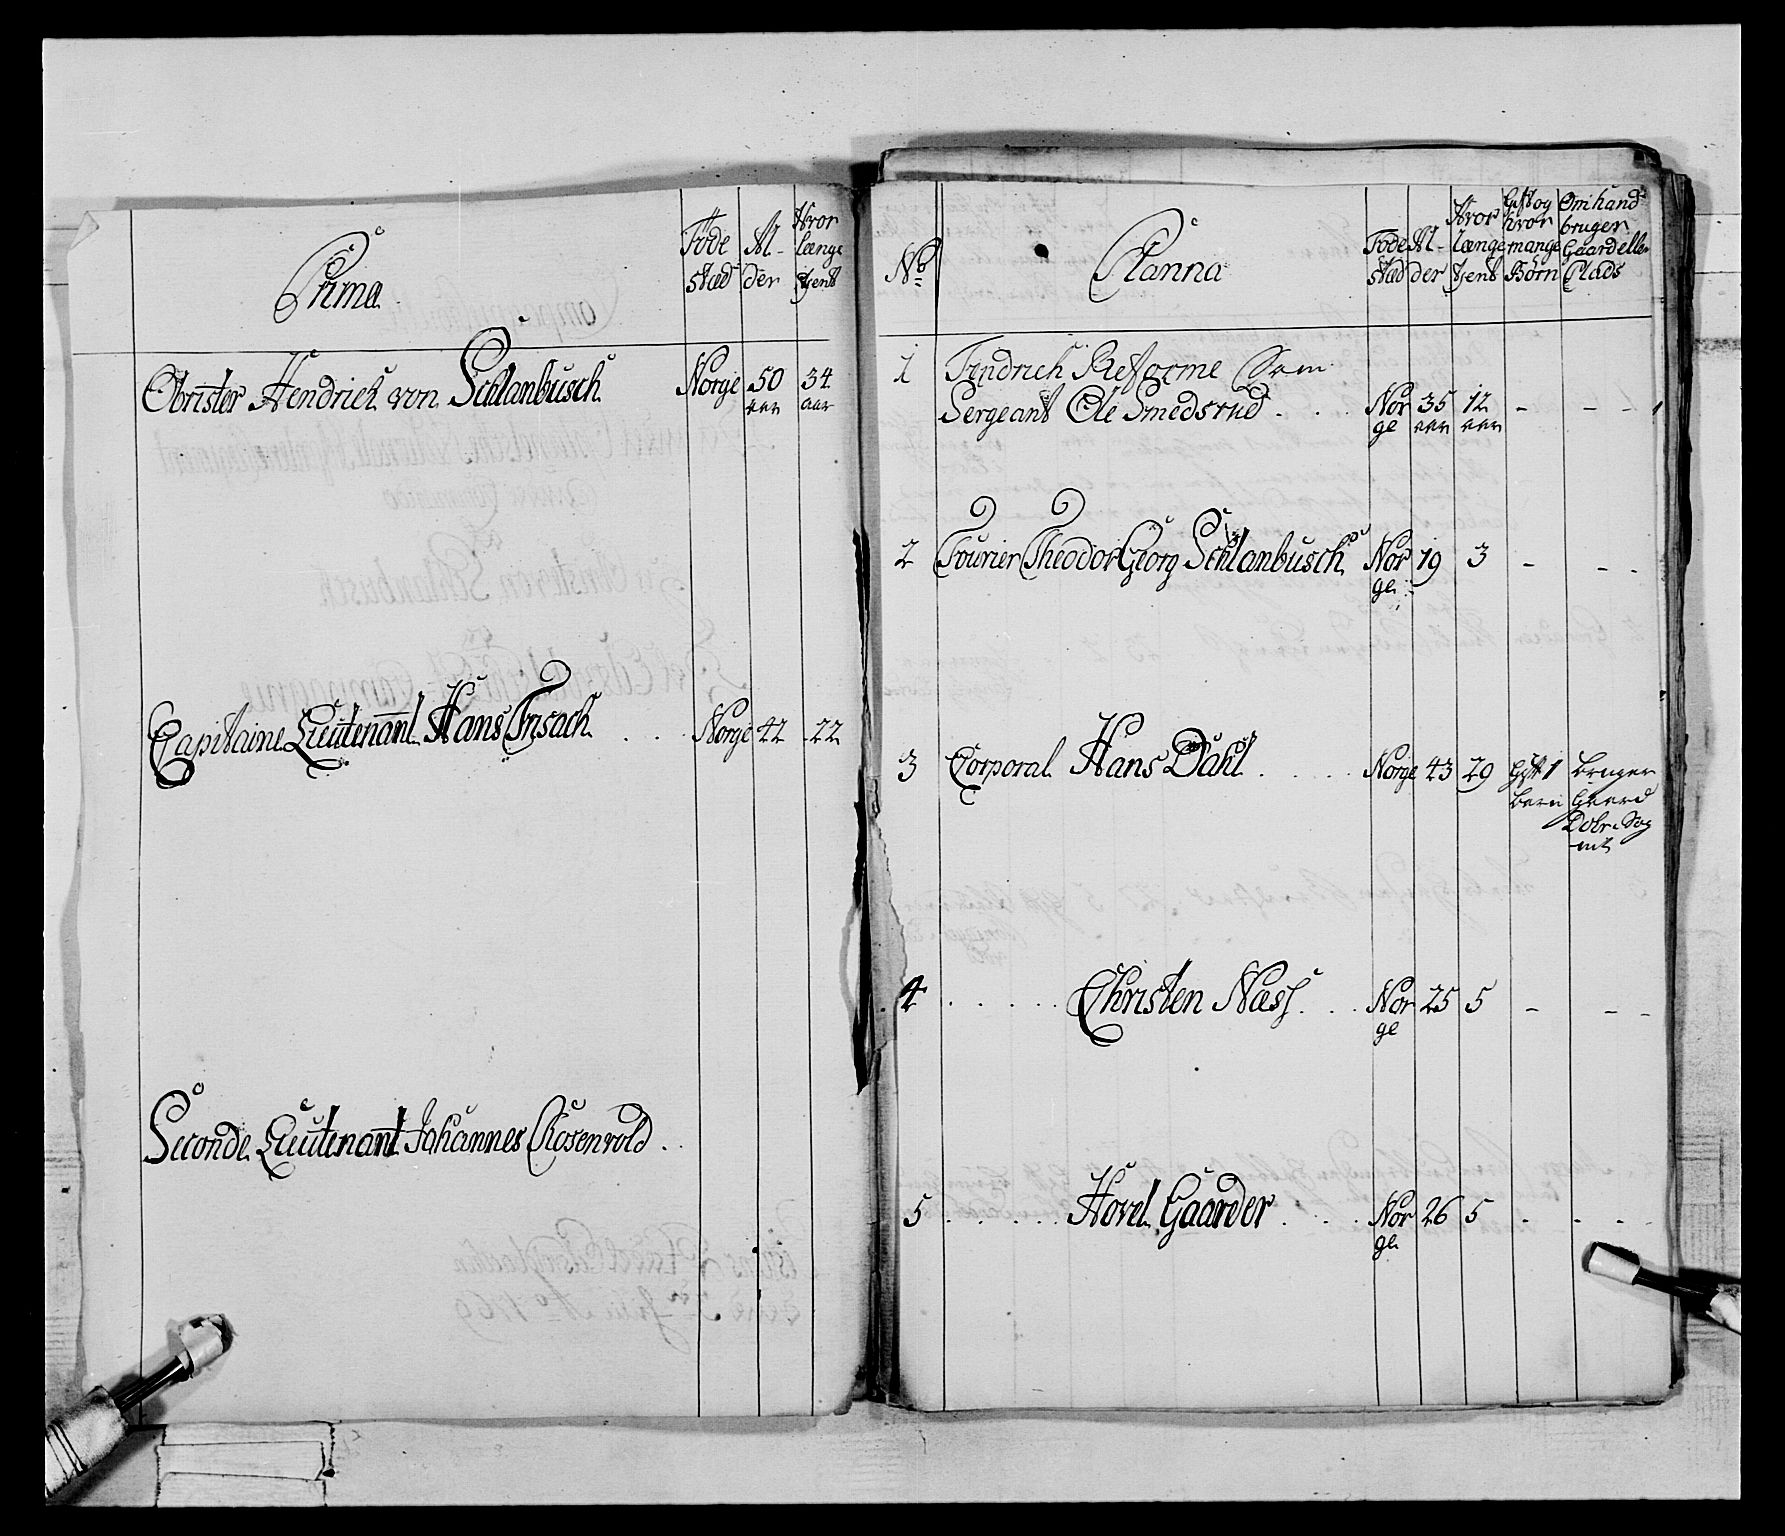 Prima
Föde
stæd
Al-
der
Hvor
længe
tjent
Obrister Hendrich von Schlanbusch
Norge
50
aar
34
aar
Capitaine Lieutenant Hans
Norge
42
22
Seconde Lieutenant Johannes Rosenvold
No
Planna
Föde
stæd
Al-
der
Hvor
længe
tjent
Gift og
hvor
mange
Börn
Om hand
bruger
Gaard eller
Plads
1
Fendrich Reforme Som
Sergeant Ole Smedsrud
Nor
ge
35
aar
12
aar
2
Fourier Theodor Georg Schlanbusch
Nor
ge
19
3
3
Corporal Hans Dahl
Norge
43
29
Gift 1
barn
bruger
Gaard
4
Christen Næss
Nor
ge
25
5
5
Hovel Gaarder
Nor
ge
26
5